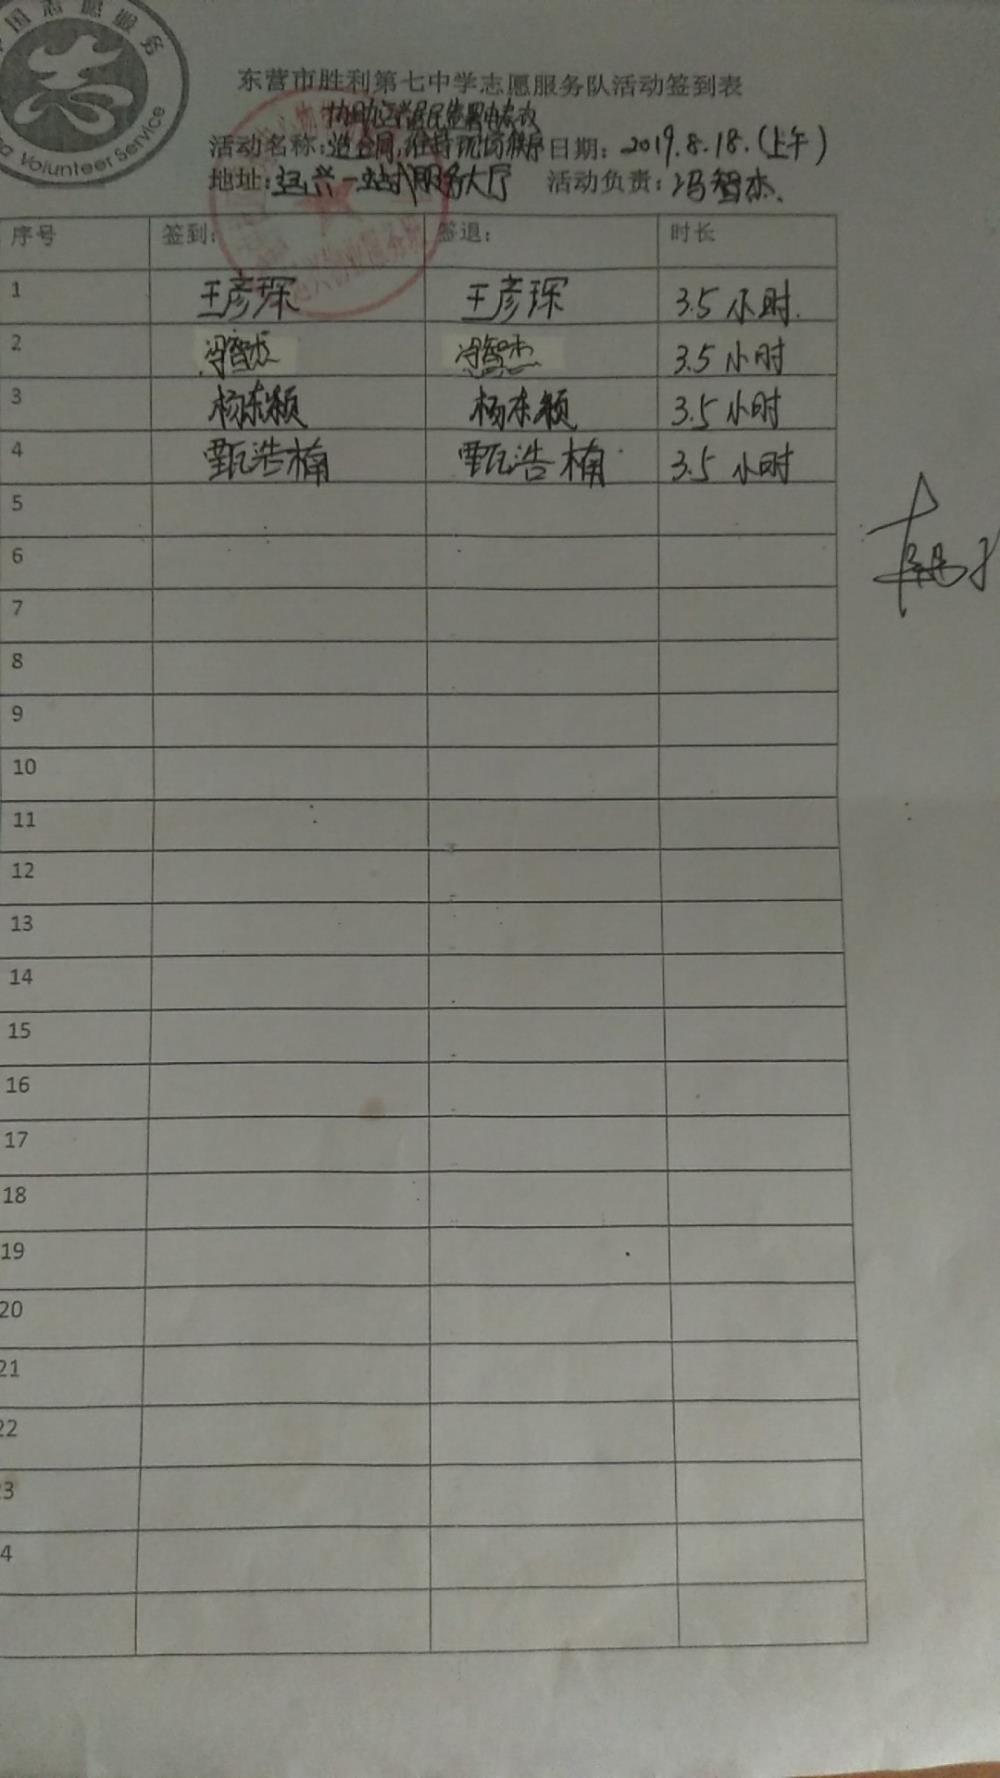 国志愿服务
Volunteer Service
东营市胜利第七中学志愿服务队活动签到表
协助辽兴居民签署电表改
活动名称:造合同,维持现场秩序 日期: 2019.8.18.(上午)
地址:辽兴一站式服务大厅 活动负责:冯智杰.
序号 签到: 签退: 时长
1 王彦琛 王彦琛 3.5小时.
2 冯智杰 冯智杰 3.5小时
3 杨东颖 杨东颖 3.5小时
4 甄浩楠 甄浩楠 3.5小时
5
6
7
8
9
10
11
12
13
14
15
16
17
18
19
20
21
22
23
4